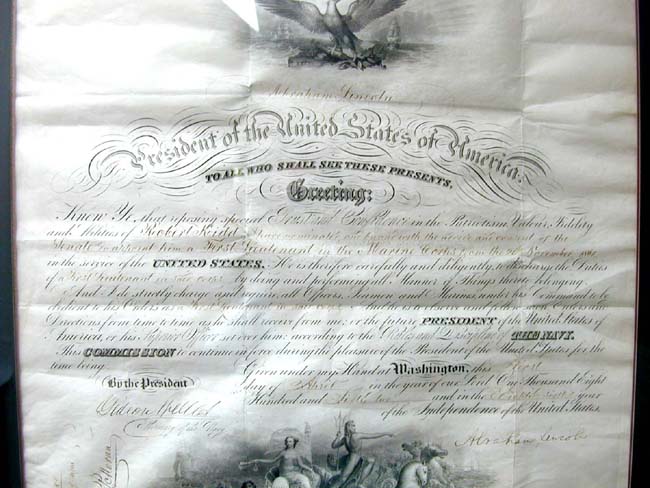 Abraham Lincoln
President of the United States of America.
TO ALL WHO SHALL SEE THESE PRESENTS,
Greeting:
Know Ye, that reposing special Trust and Confidence in the Patriotism, Valour, Fidelity
and Abilities of Robert Kidd I have nominated, and by and with the advice and consent of the
Senate do appoint him a First Lieutenant in the Marine Corps from the November
in the service of the UNITED STATES. He is therefore carefully and diligently to discharge the Duties
of a First Lieutenant in said corps by doing and performing all Manner of Things thereto belonging.
And I do strictly charge and require all Officers, Seamen and Marines under his Command to be
obedient to his Orders as a First Lieutenant in said corps And he is to observe and follow such Orders and
Directions from time to time as he shall receive from me; or the future PRESIDENT of the United States of
America, or his Superior Officer set over him; according to the Rules and Discipline of THE NAVY.
This COMMISSION to continue in force during the pleasure of the President of the United States for the
time being.
Given under my Hand at Washington, this First
day of in the year of our Lord One Thousand Eight
By the President
Hundred and and in the year
of the Independence of the United States.
Gideon Welles
Secretary of the Navy
Abraham Lincoln